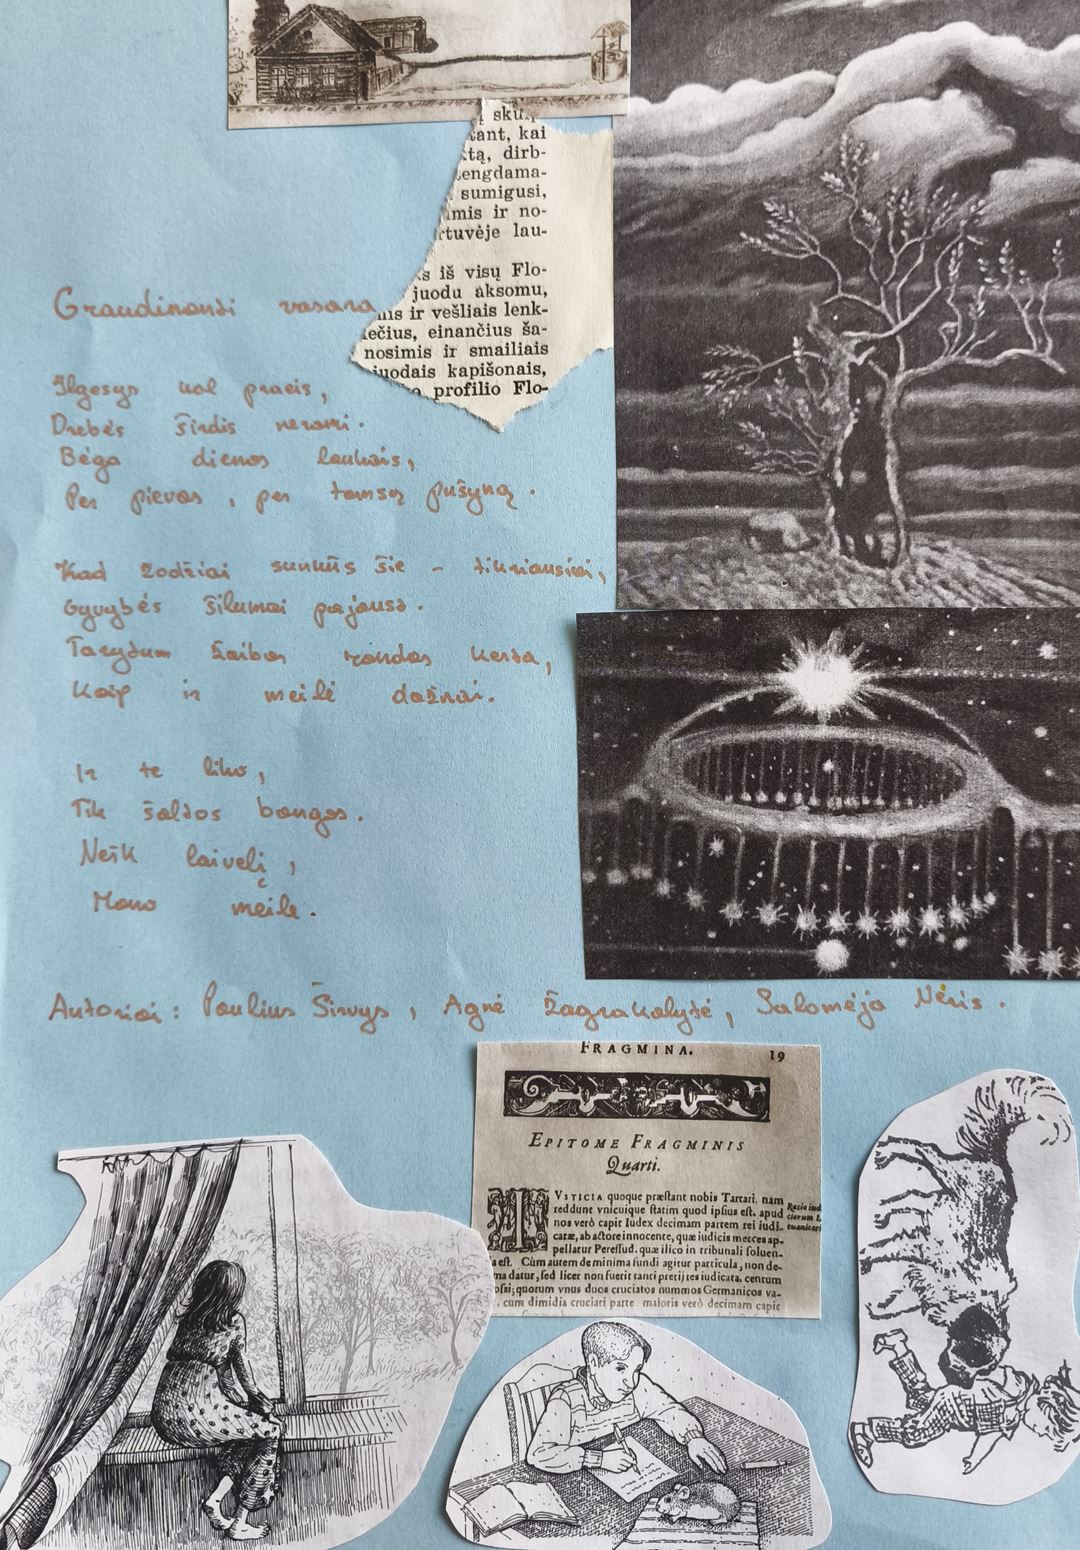 skun
tant, kai
ktą, dirb-
tengdama-
sumigusi,
imis ir no-
rtuvėje lau-
ks iš visų Flo-
juodu aksomu,
nis ir vešliais lenk-
iečius, einančius ša-
nosimis ir smailiais
juodais kapišonais,
profilio Flo-
Graudinanti vasara
Ilgesys vol praeis,
Drebės širdis nerami.
Bėga dienos laukais,
Per pievas, per tamsų pušyną.
Kad žodžiai sunkūs šie - tikriausiai,
Gyvybės šilumai pajaust.
Tarytum žaibas randas kerta,
Kaip ir meilė dažnai.
Ir te liko,
Tik šaltos bangos.
Nešk laivelį,
Mano meilę.
Autoriai: Paulius Širvys, Agnė Žagrakalytė, Salomėja Nėris.
FRAGMINA. 19
EPITOME FRAGMINIS
Quarti.
IVSTICIA quoque præstant nobis Tartari. nam
reddunt vnicuique statim quod ipsius est. apud
nos verò capit Iudex decimam partem rei iudi-
catæ, ab actore innocente, quæ iudicis merces ap-
pellatur Peressud. quæ ilico in tribunali soluen-
a est. Cùm autem de minima fundi agitur particula, non de-
ma datur, sed licet non fuerit tanti precij res iudicata, centum
ossi; quorum vnus duos cruciatos nummos Germanicos va-
cum dimidia cruciati parte maioris verò decimam capit
Ratio iud
ciorum L
tuanicor